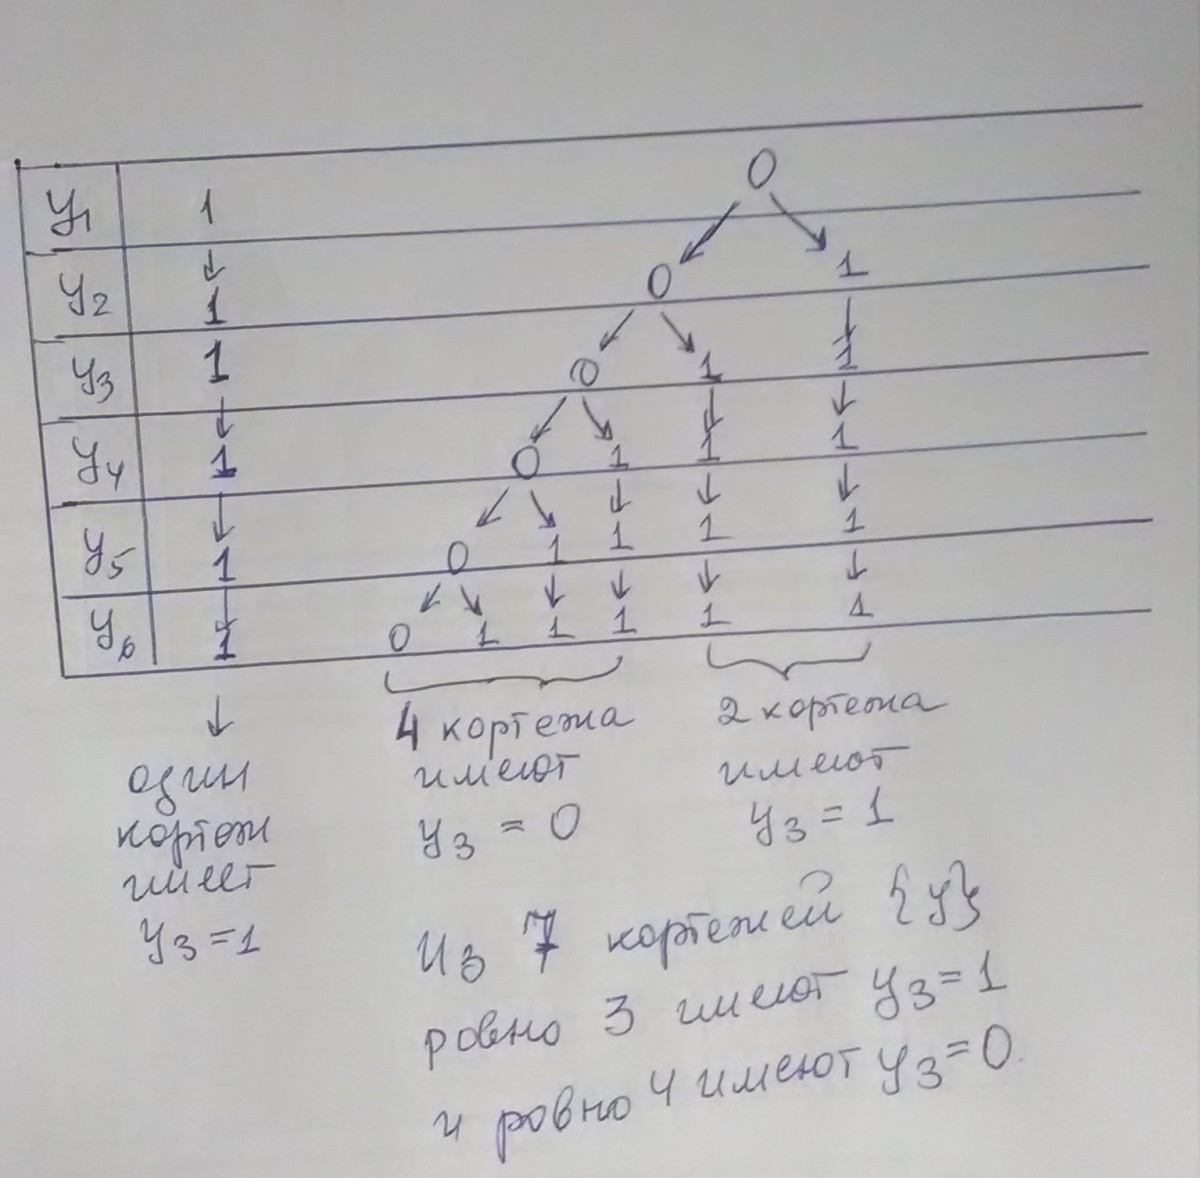 y1 1 0
y2 1 0 1
y3 1 0 1 1
y4 1 0 1 1 1
y5 1 0 1 1 1 1
y6 1 0 1 1 1 1 1
один
кортеж
имеет
y3 = 1
4 кортежа
имеют
y3 = 0
2 кортежа
имеют
y3 = 1
Из 7 кортежей {y}
ровно 3 имеют y3 = 1
и ровно 4 имеют y3 = 0.